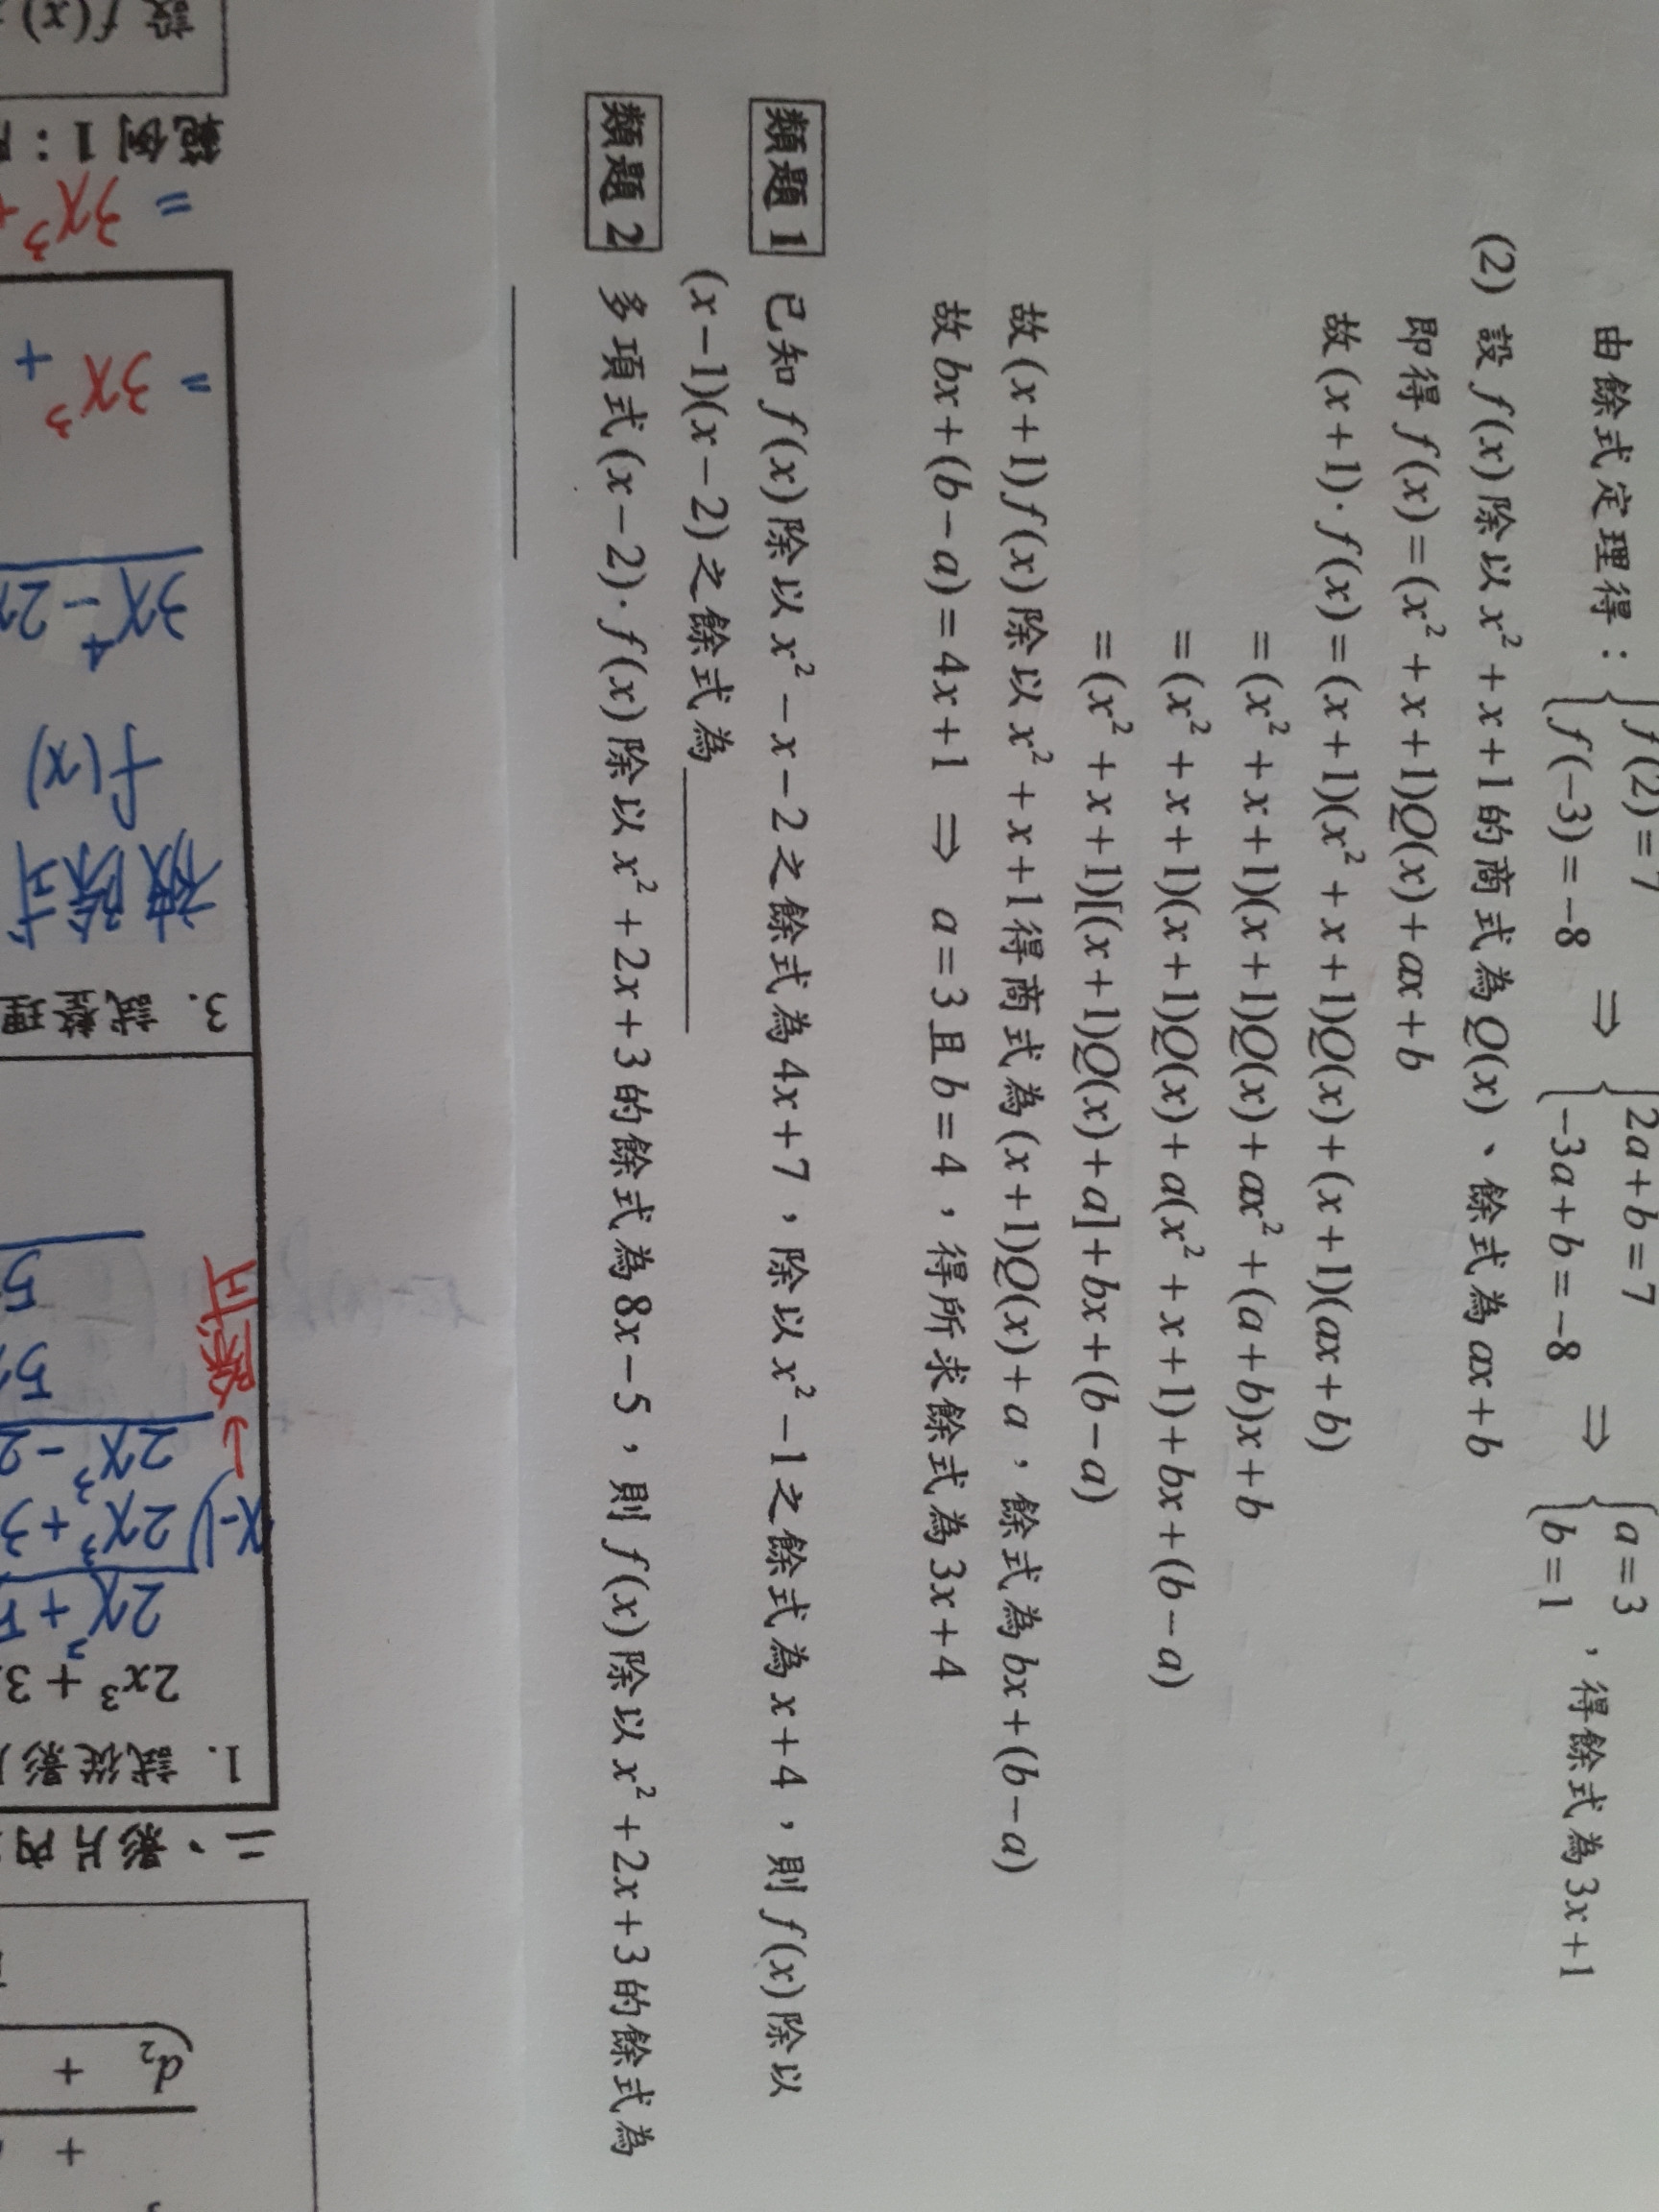 由餘式定理得：{f(2)=7 ⇒ {2a+b=7 ⇒ {a=3
{f(-3)=-8 ⇒ {-3a+b=-8 ⇒ {b=1 ，得餘式為3x+1
(2) 設f(x)除以x²+x+1的商式為Q(x)、餘式為ax+b
即得f(x)=(x²+x+1)Q(x)+ax+b
故(x+1)·f(x)=(x+1)(x²+x+1)Q(x)+(x+1)(ax+b)
=(x²+x+1)(x+1)Q(x)+ax²+(a+b)x+b
=(x²+x+1)(x+1)Q(x)+a(x²+x+1)+bx+(b-a)
=(x²+x+1)[(x+1)Q(x)+a]+bx+(b-a)
故(x+1)f(x)除以x²+x+1得商式為(x+1)Q(x)+a，餘式為bx+(b-a)
故bx+(b-a)=4x+1 ⇒ a=3且b=4，得所求餘式為3x+4
類題1 已知f(x)除以x²-x-2之餘式為4x+7，除以x²-1之餘式為x+4，則f(x)除以
(x-1)(x-2)之餘式為
類題2 多項式(x-2)·f(x)除以x²+2x+3的餘式為8x-5，則f(x)除以x²+2x+3的餘式為
設f(x)
範例1：
= 3x³+
= 3x³
+
3x⁴-2x
f(x)
被除式
3. 試
除式→
x-1
2x³-2
2x³+3
2x²+5
2x³+3
1. 試從影
二、影片內
a₂
+
+